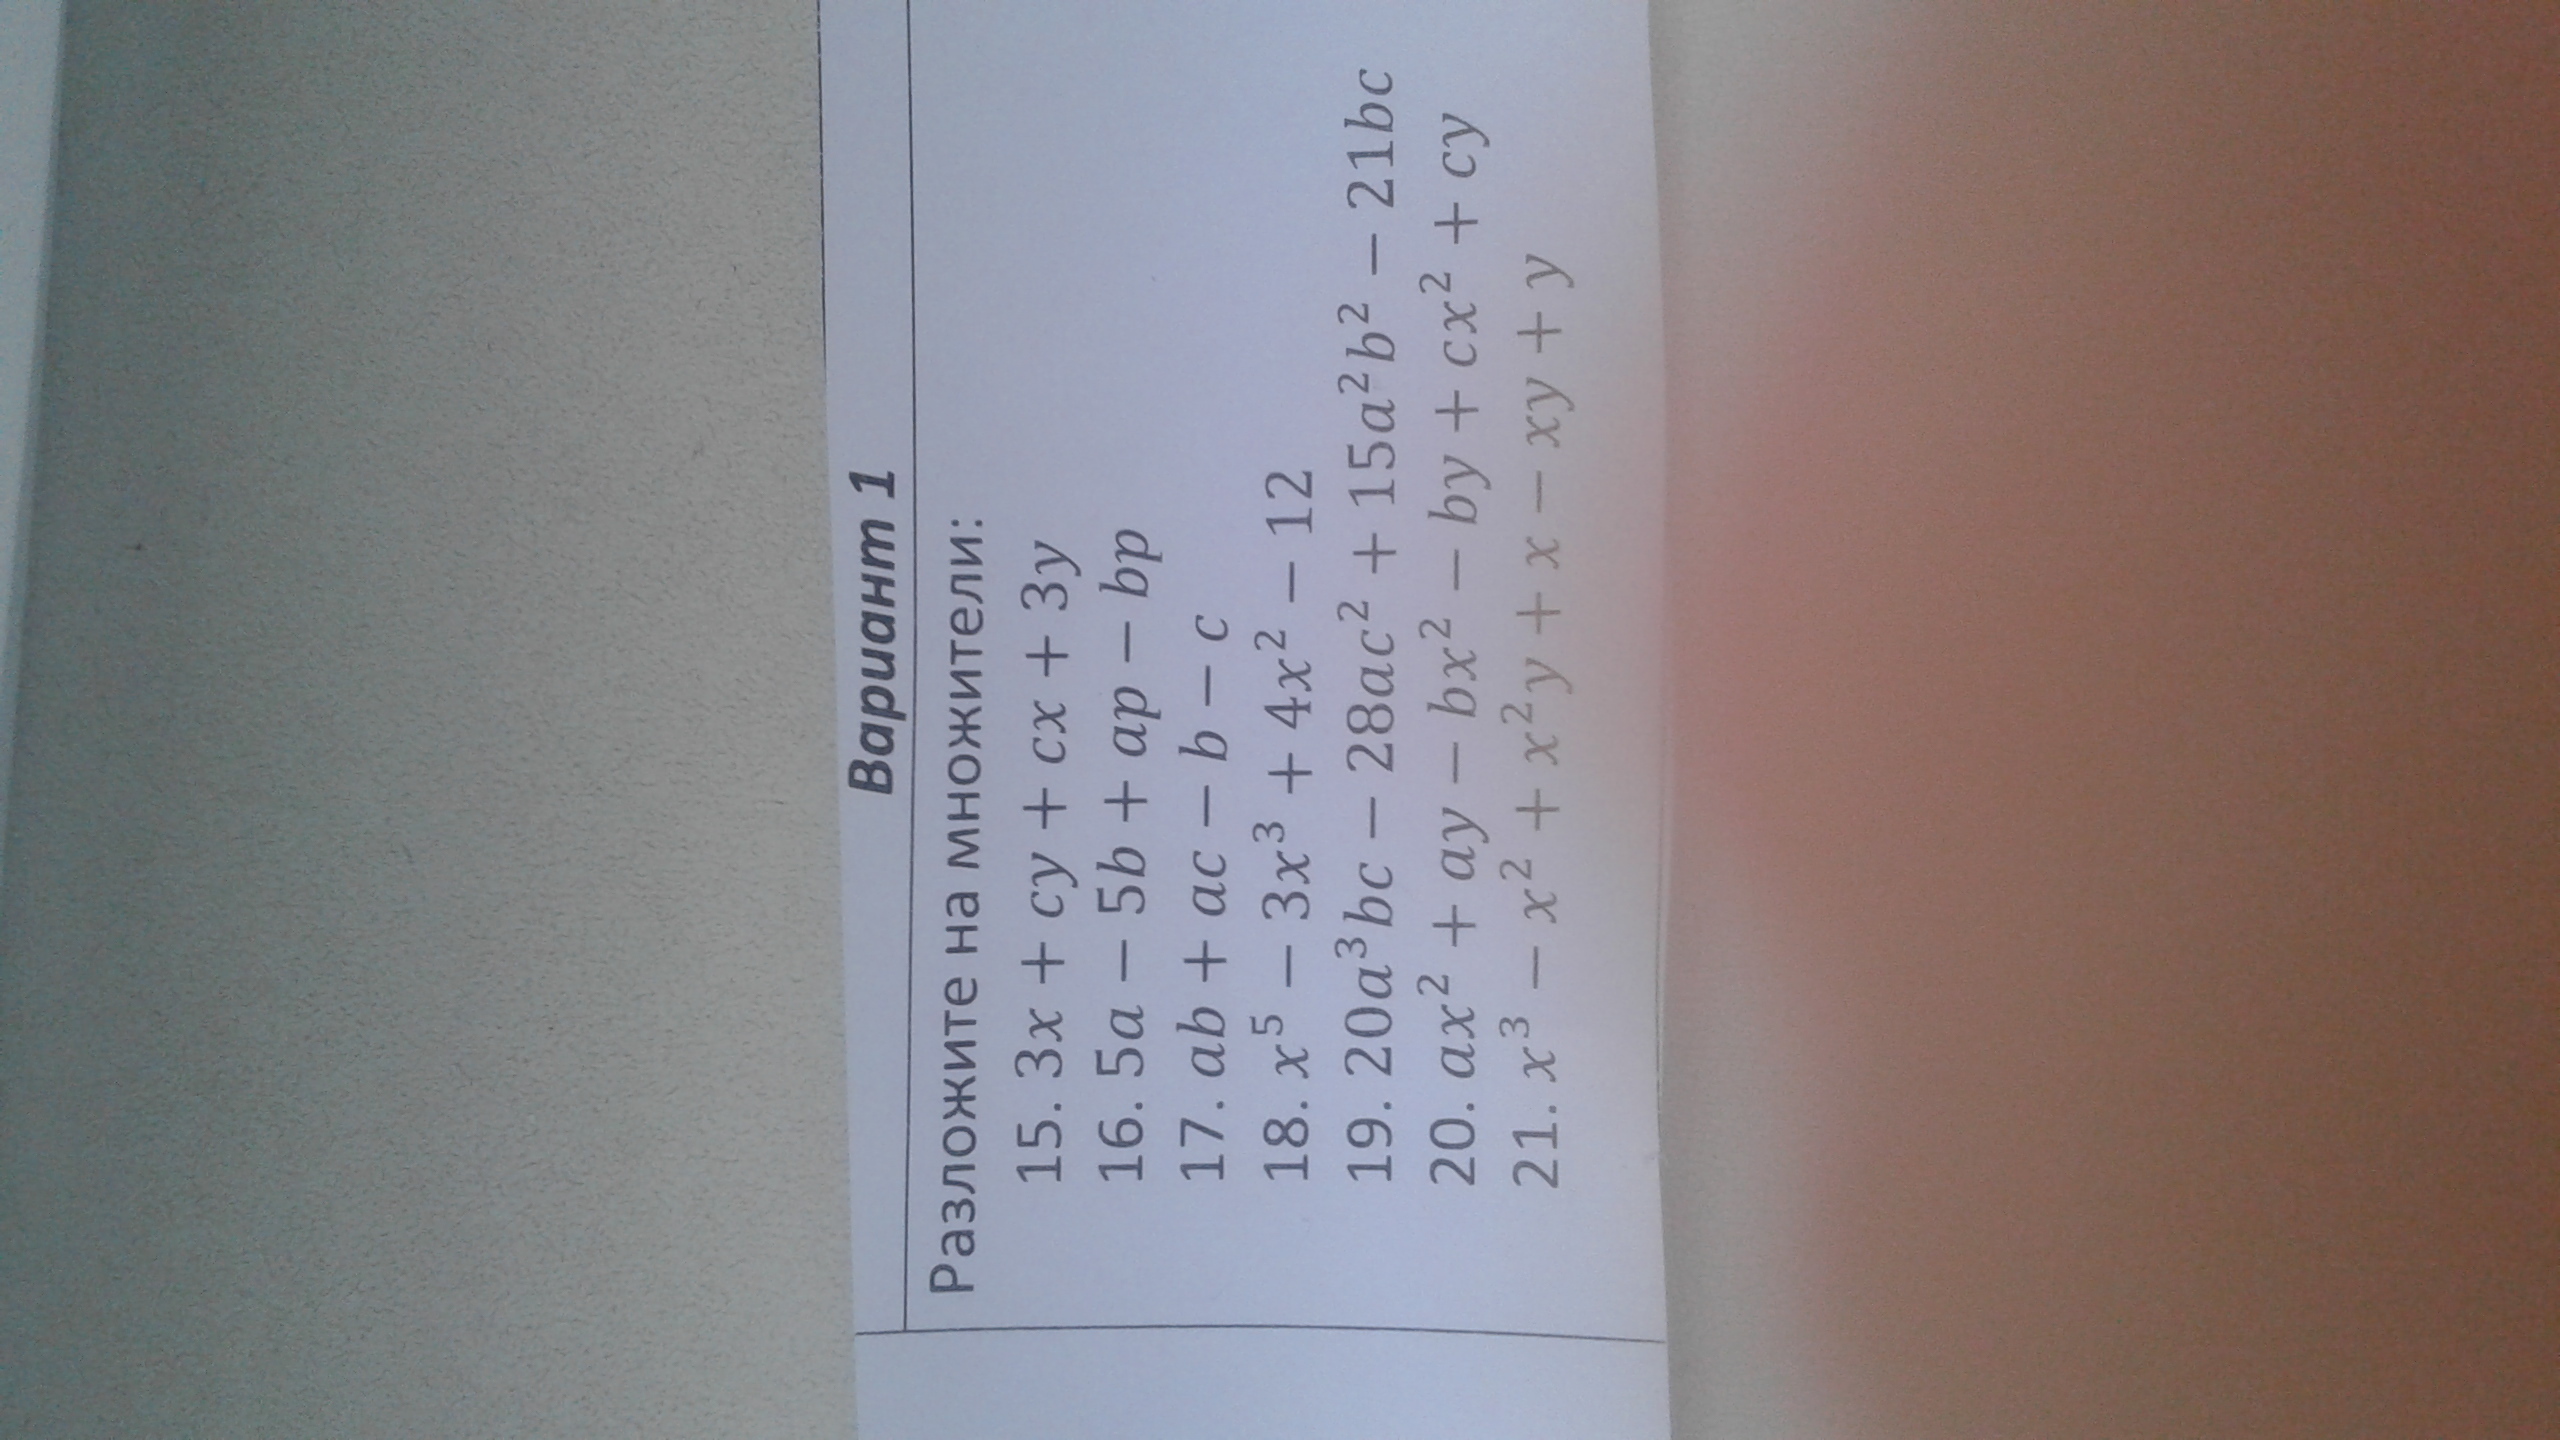 Вариант 1
Разложите на множители:
15. 3x + cy + cx + 3y
16. 5a − 5b + ap − bp
17. ab + ac − b − c
18. x⁵ − 3x³ + 4x² − 12
19. 20a³bc − 28ac² + 15a²b² − 21bc
20. ax² + ay − bx² − by + cx² + cy
21. x³ − x² + x²y + x − xy + y